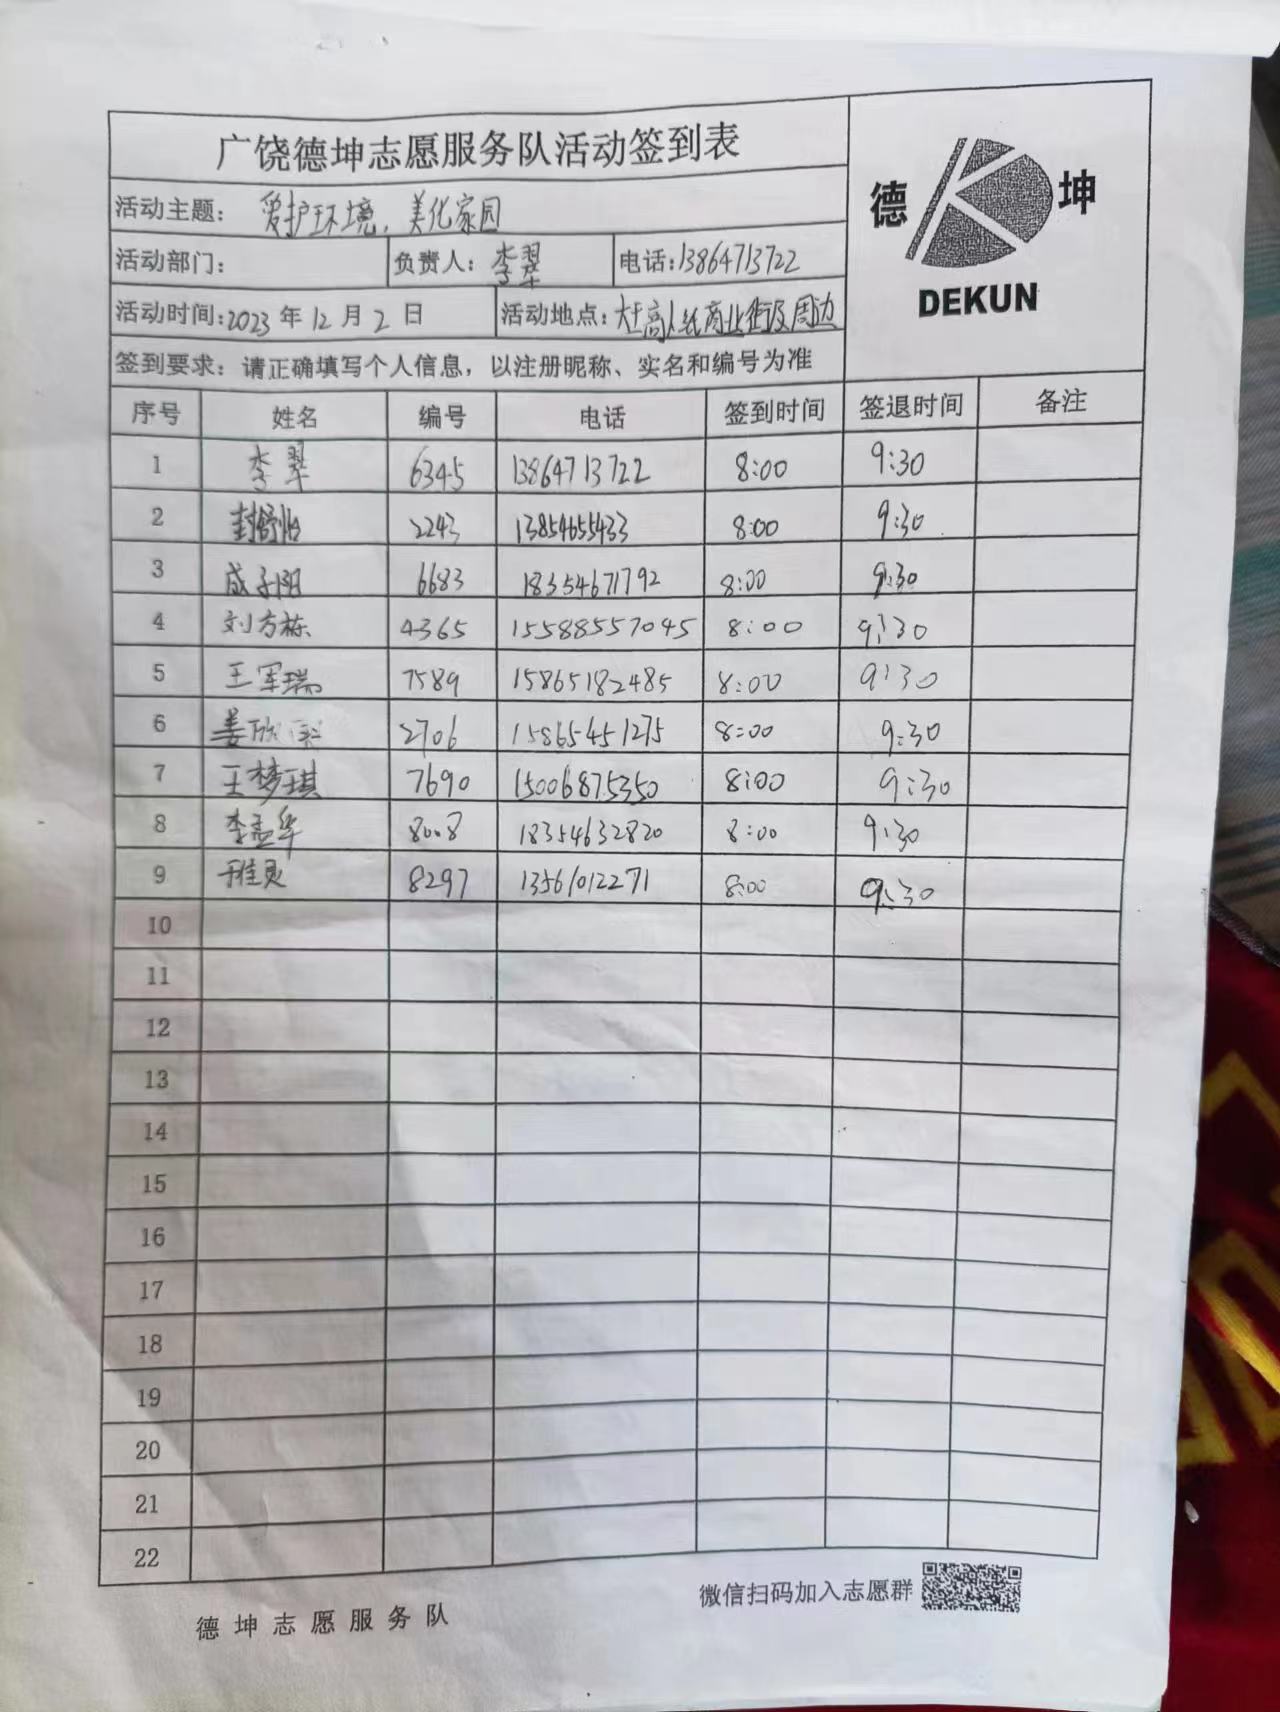 广饶德坤志愿服务队活动签到表
德 坤
DEKUN
活动主题: 爱护环境,美化家园
活动部门: 负责人: 李翠 电话:13864713722
活动时间:2023年12月2日 活动地点: 商业街及周边
签到要求: 请正确填写个人信息，以注册昵称、实名和编号为准
序号 姓名 编号 电话 签到时间 签退时间 备注
1 李翠 6345 13864713722 8:00 9:30
2 封舒怡 2243 13854655433 8:00 9:30
3 成子阳 6683 18354671792 8:00 9:30
4 刘方栋 4365 15588557045 8:00 9:30
5 王军瑞 7589 15865182485 8:00 9:30
6 姜欣 2706 15865451275 8:00 9:30
7 王梦琪 7690 15006875350 8:00 9:30
8 李孟华 8008 18354632820 8:00 9:30
9 8297 13561012271 8:00 9:30
10
11
12
13
14
15
16
17
18
19
20
21
22
微信扫码加入志愿群
德坤志愿服务队